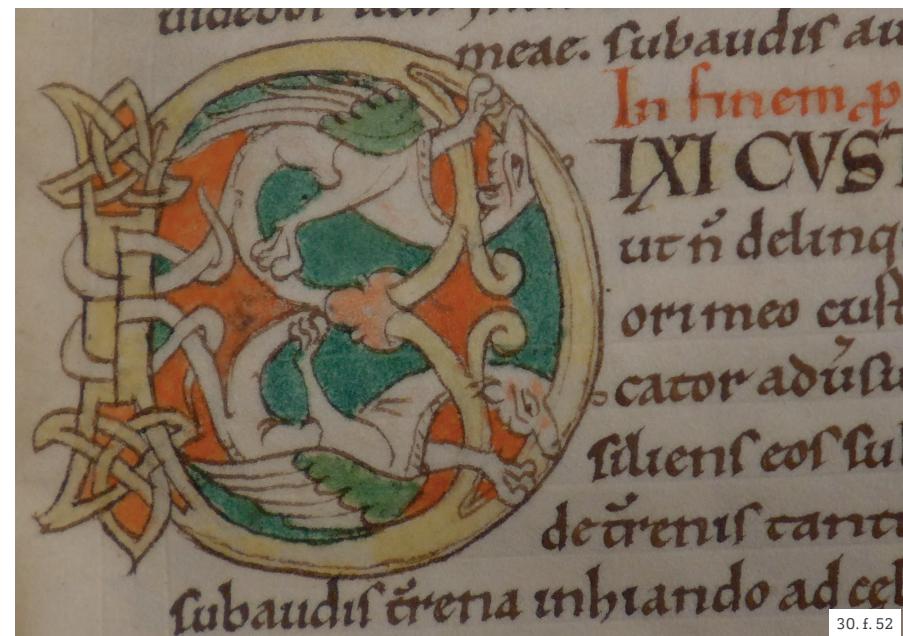 meae. subaudis au
In finem p
DIXI CVST
ut n̄ delinq
ori meo cust
cator adu͛su
siliens eos sub
de tr̄renis tant
subaudis tr̄rena inhiando ad cęl
30. f. 52